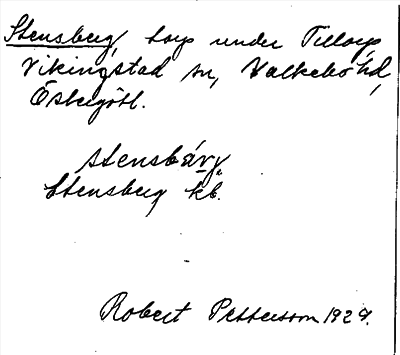 Stensberg, torp under Tillorp,
Vikingstad sn, Valkebo hd,
Östergötl.
stensbärj
Stensberg kb.
Robert Pettersson 1929.